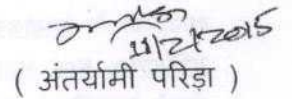 11/2/2015
( अंतर्यामी परिडा )